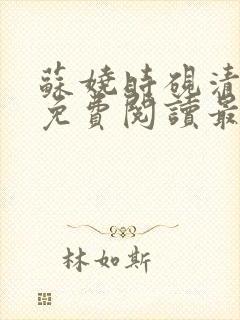 蘇嬈時硯清
免費閱讀最
林如斯